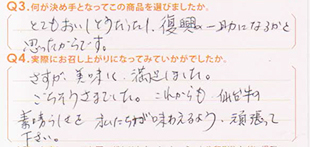 Q3.何が決め手となってこの商品を選びましたか。
とてもおいしそうだったし、復興の一助になるかと
思ったからです。
Q4.実際にお召し上がりになってみていかがでしたか。
さすが、美味しく、満足しました。
ごちそうさまでした。これからも、仙台牛の
素晴らしさを 私たちが味わえるよう、頑張って
下さい。